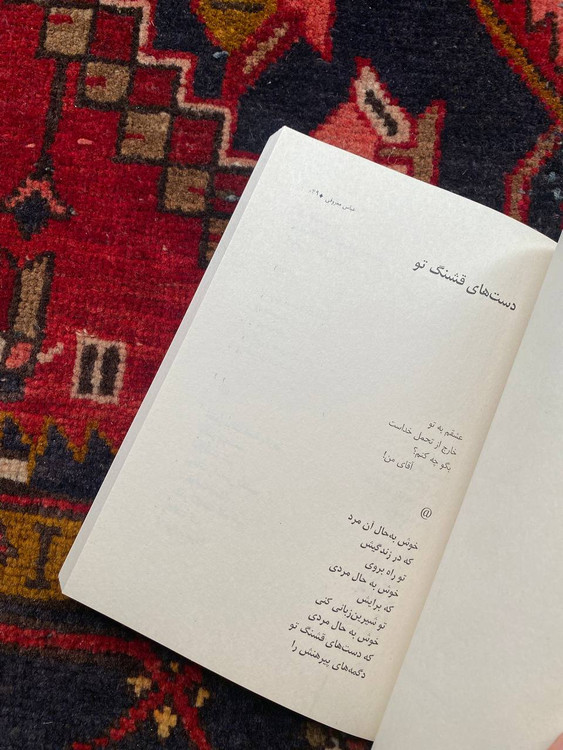 عباس معروفی ● ۲۹
دست‌های قشنگ تو
عشقم به تو
خارج از تحمل خداست
بگو چه کنم؟
آقای من!
@
خوش به‌حال آن مرد
که در زندگیش
تو راه بروی
خوش به حال مردی
که برایش
تو شیرین‌زبانی کنی
خوش به حال مردی
که دست‌های قشنگ تو
دگمه‌های پیرهنش را